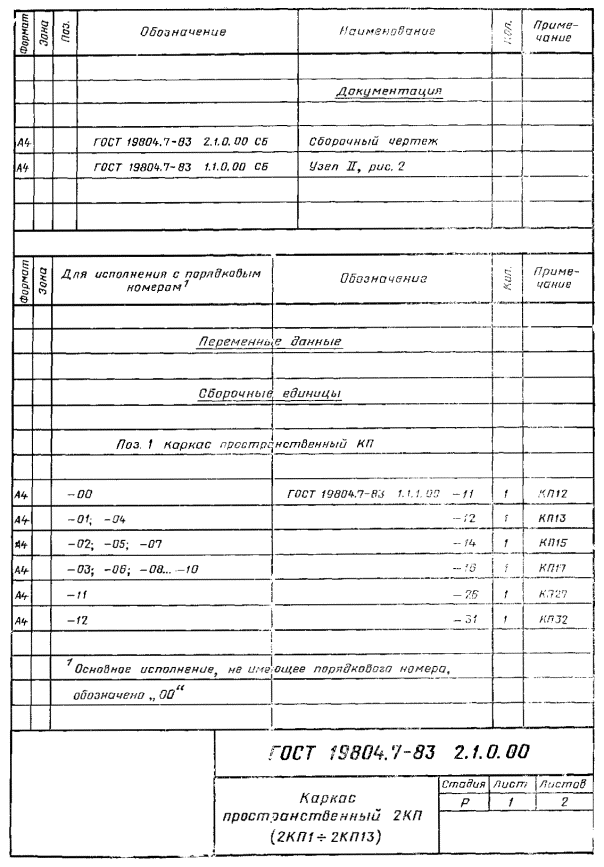 Формат Зона Поз. Обозначение Наименование Кол. Приме-
чание
Документация
А4 ГОСТ 19804.7-83 2.1.0.00 СБ Сборочный чертеж
А4 ГОСТ 19804.7-83 1.1.0.00 СБ Узел II, рис. 2
Формат Зона Для исполнения с порядковым Обозначение Кол. Приме-
номерам¹ чание
Переменные данные
Сборочные единицы
Поз. 1 Каркас пространственный КП
А4 -00 ГОСТ 19804.7-83 1.1.1.00 -11 1 КП12
А4 -01; -04 -12 1 КП13
А4 -02; -05; -07 -14 1 КП15
А4 -03; -06; -08... -10 -16 1 КП17
А4 -11 -26 1 КП27
А4 -12 -31 1 КП32
¹ Основное исполнение, не имеющее порядкового номера,
обозначено „00“
ГОСТ 19804.7-83 2.1.0.00
Каркас
пространственный 2КП
(2КП1÷2КП13)
Стадия Лист Листов
Р 1 2